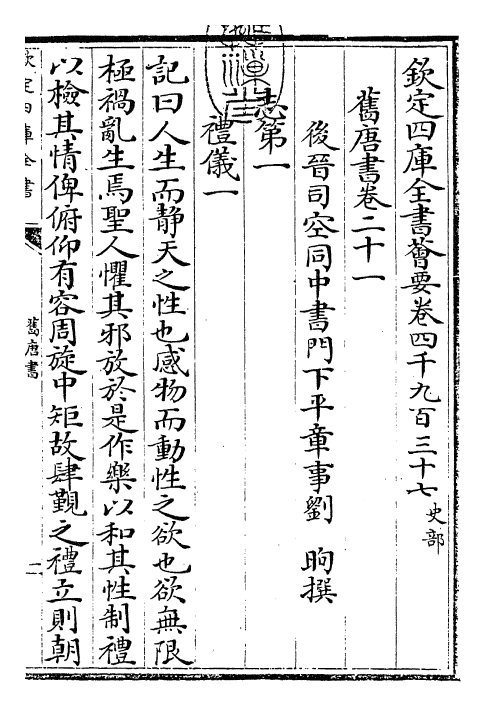 欽定四庫全書薈要卷四千九百三十七 史部
舊唐書卷二十一
後晉司空同中書門下平章事劉 昫撰
志第一
禮儀一
記曰人生而靜天之性也感物而動性之欲也欲無限
極禍亂生焉聖人懼其邪放於是作樂以和其性制禮
以檢其情俾俯仰有容周旋中矩故肆覲之禮立則朝
欽定四庫全書
舊唐書